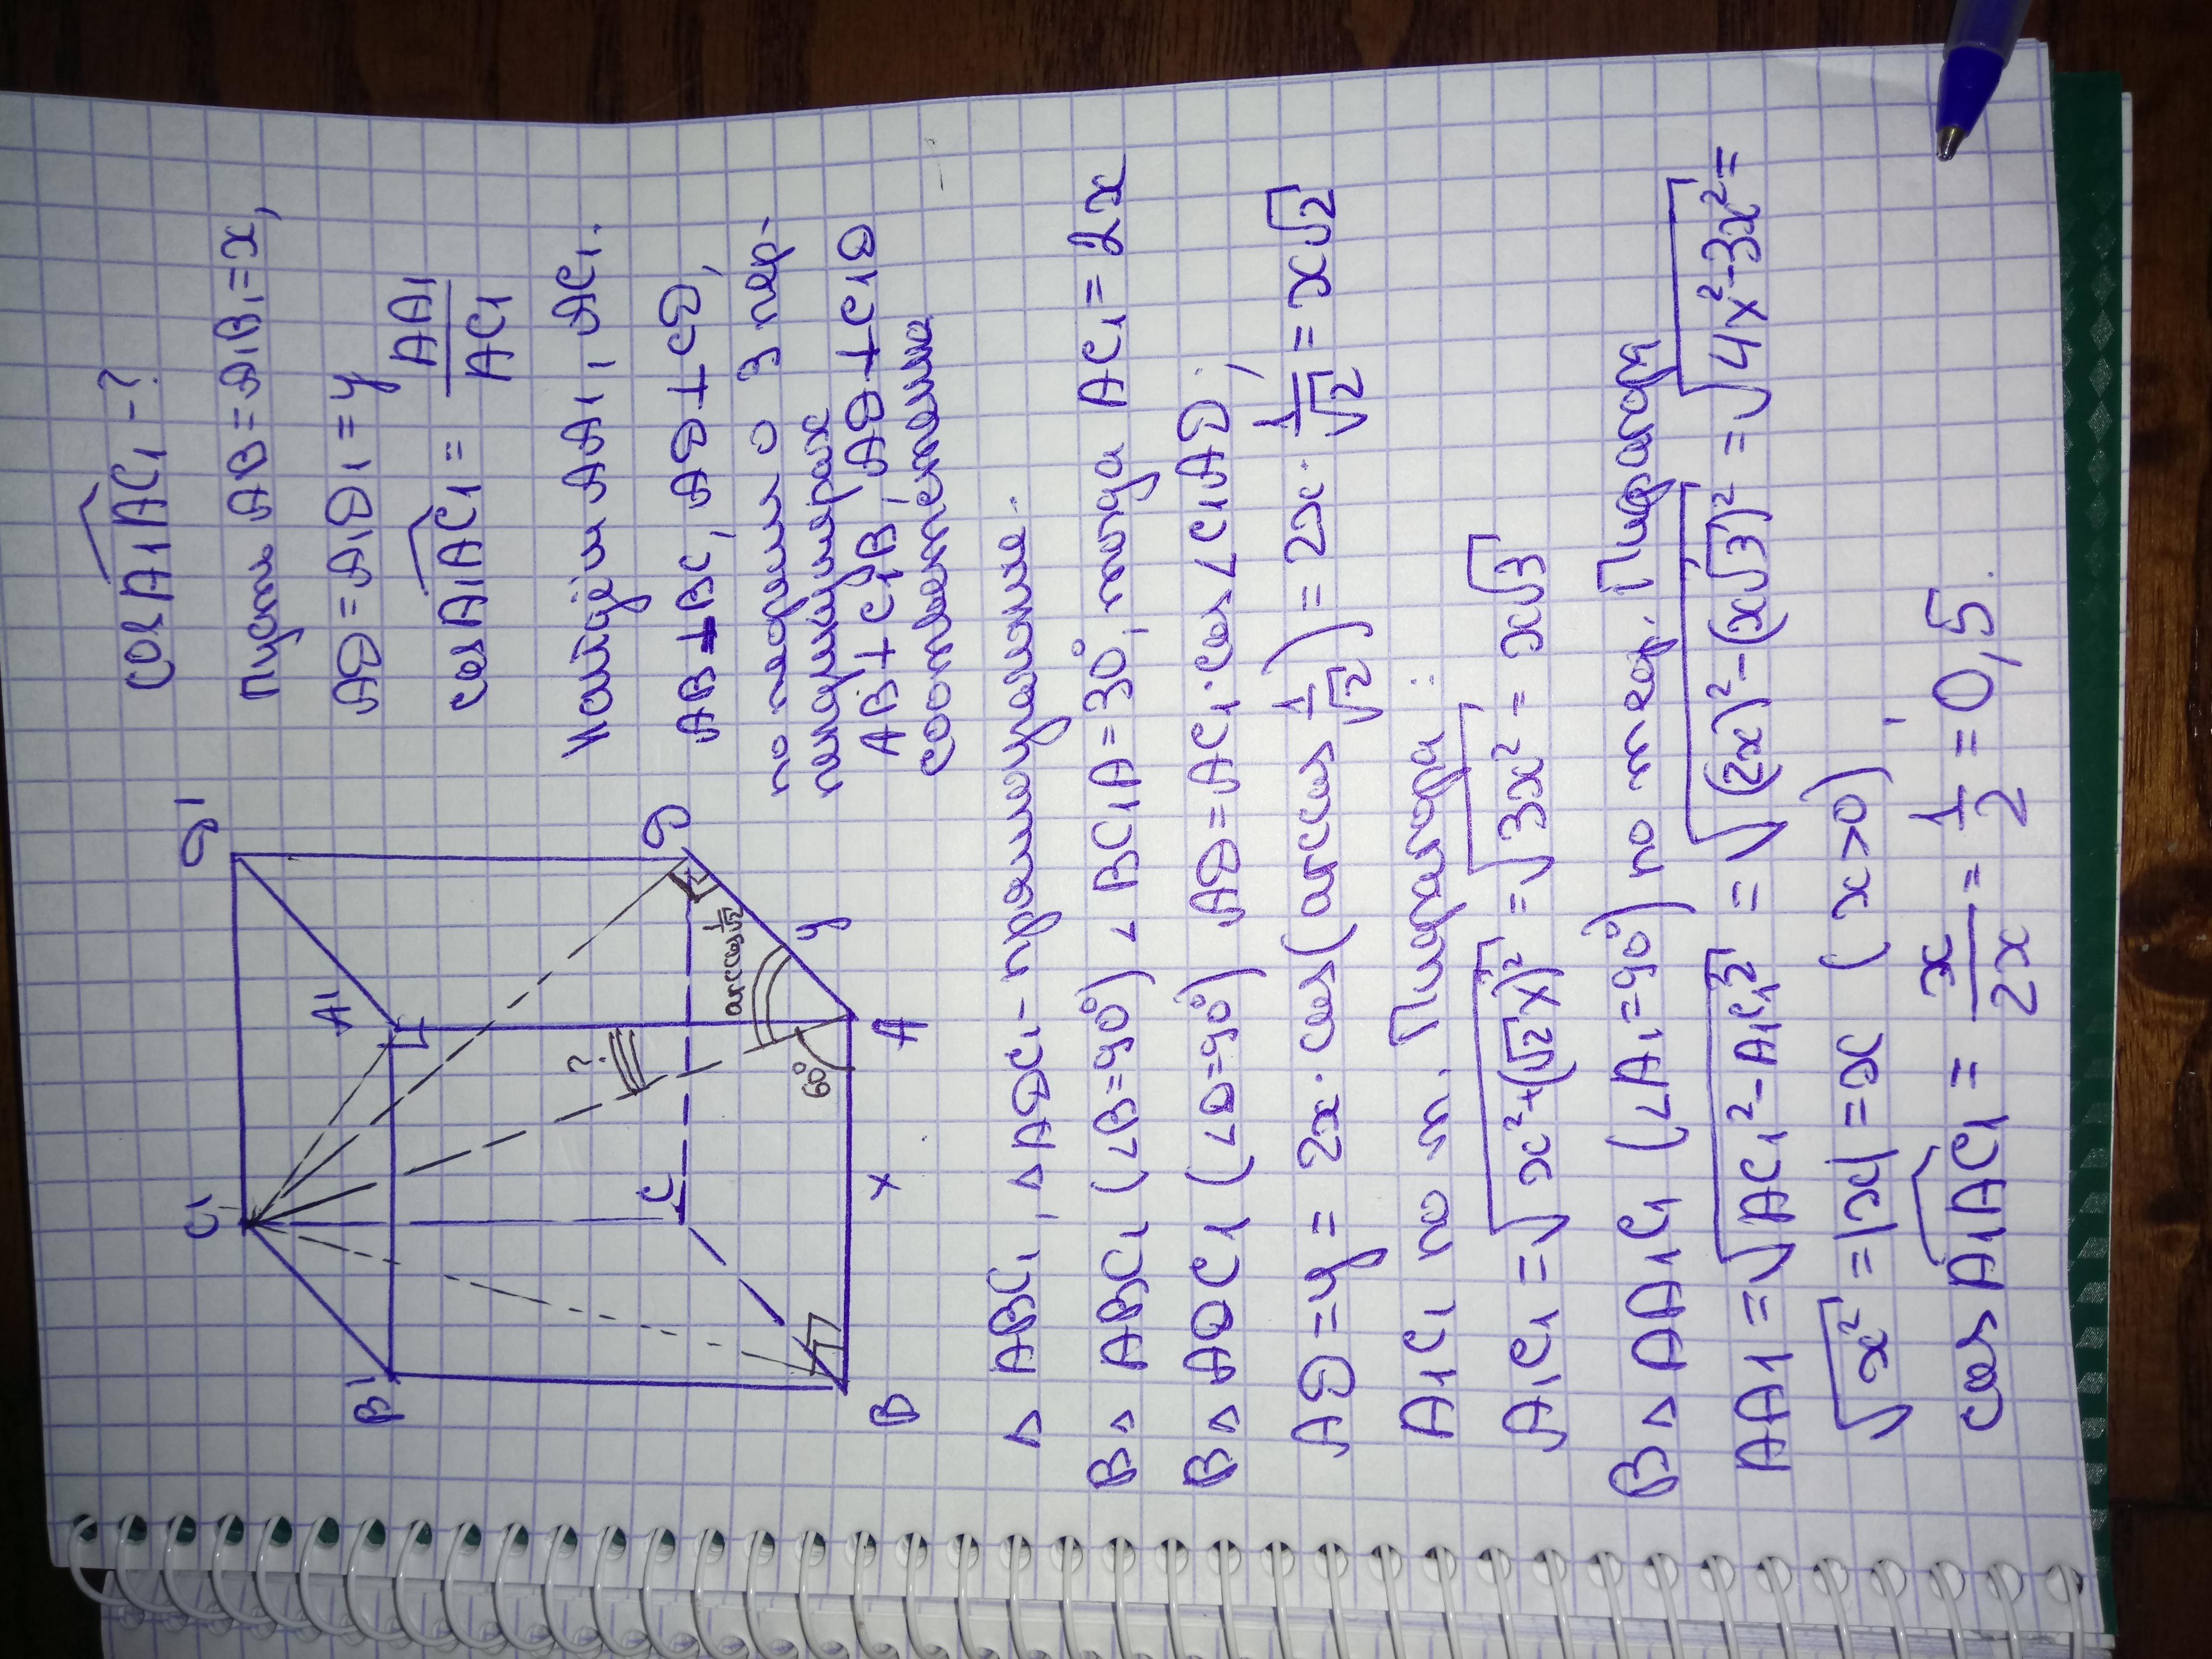 cos A1AC1 - ?
Пусть AB = A1B1 = x,
AD = A1D1 = y
cos A1AC1 = AA1/AC1
Найдём AA1, AC1.
AB ⊥ BC, AD ⊥ CD,
по теореме о 3 пер-
пендикулярах
AB ⊥ C1B, AD ⊥ C1D
соответственно
B1
C1
A1
D1
C
D
B
A
x
y
60°
arccos 1/√2
?
△ ABC1, △ ADC1 - прямоугольные.
В △ ABC1 (∠B=90°) ∠ BC1A = 30°, тогда AC1 = 2x
В △ ADC1 (∠D=90°) AD = AC1 · cos ∠ C1AD;
AD = y = 2x · cos(arccos 1/√2) = 2x · 1/√2 = x√2
A1C1 по т. Пифагора:
A1C1 = √(x²+(√2x)²) = √(3x²) = x√3
В △ AA1C1 (∠A1=90°) по теор. Пифагора
AA1 = √(AC1² - A1C1²) = √((2x)² - (x√3)²) = √(4x²-3x²) =
√(x²) = |x| = x (x>0),
cos A1AC1 = x/2x = 1/2 = 0,5.